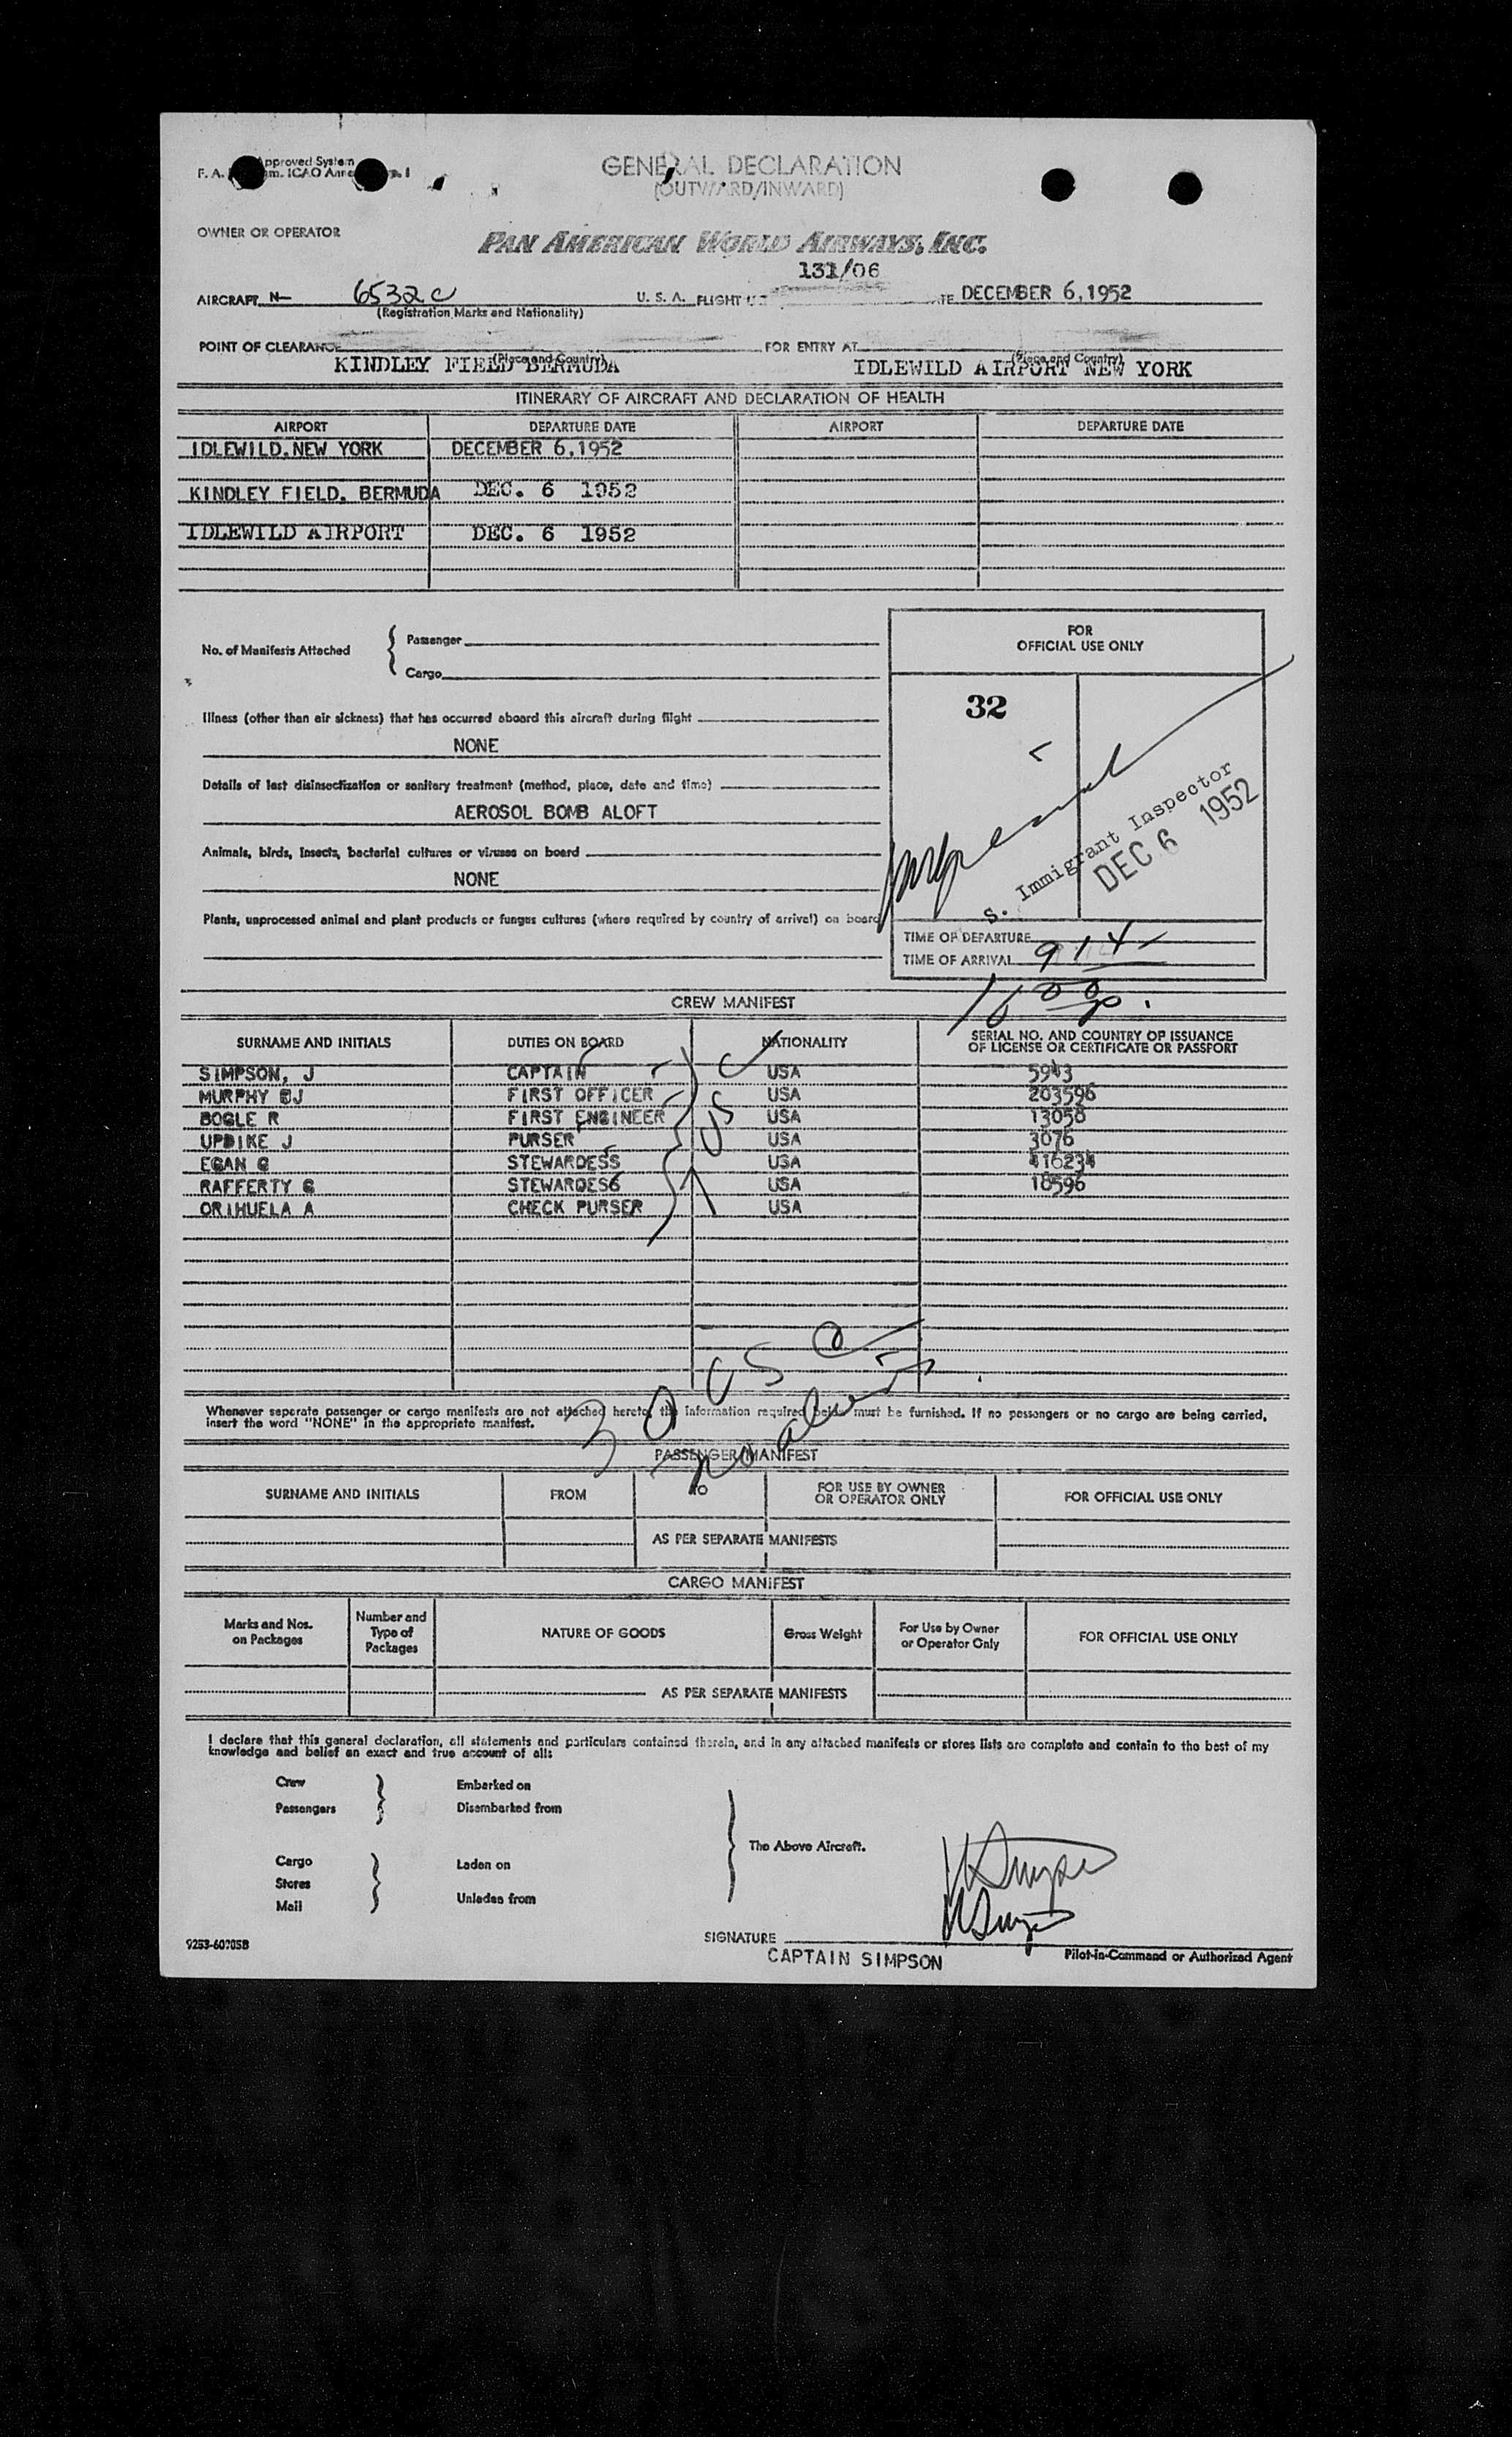 Approved System
F. A. m. ICAO Anne p. 1
GENERAL DECLARATION
(OUTWARD/INWARD)
OWNER OR OPERATOR
PAN AMERICAN WORLD AIRWAYS, INC.
131/06
AIRCRAFT N— 6532C U. S. A. FLIGHT DECEMBER 6,1952
(Registration Marks and Nationality)
POINT OF CLEARANCE FOR ENTRY AT
(Place and Country) (Place and Country)
KINDLEY FIELD BERMUDA IDLEWILD AIRPORT NEW YORK
ITINERARY OF AIRCRAFT AND DECLARATION OF HEALTH
AIRPORT DEPARTURE DATE AIRPORT DEPARTURE DATE
IDLEWILD.NEW YORK DECEMBER 6,1952
KINDLEY FIELD. BERMUDA DEC. 6 1952
IDLEWILD AIRPORT DEC. 6 1952
No. of Manifests Attached { Passenger
Cargo
FOR
OFFICIAL USE ONLY
32
Illness (other than air sickness) that has occurred aboard this aircraft during flight
NONE
Details of last disinsectization or sanitary treatment (method, place, date and time)
AEROSOL BOMB ALOFT
Animals, birds, insects, bacterial cultures or viruses on board
NONE
Plants, unprocessed animal and plant products or fungus cultures (where required by country of arrival) on board
S. Immigrant Inspector
DEC 6 1952
TIME OF DEPARTURE
TIME OF ARRIVAL 914
CREW MANIFEST
SURNAME AND INITIALS DUTIES ON BOARD NATIONALITY SERIAL NO. AND COUNTRY OF ISSUANCE
OF LICENSE OR CERTIFICATE OR PASSPORT
SIMPSON, J CAPTAIN USA 5943
MURPHY EJ FIRST OFFICER USA 203596
BOGLE R FIRST ENGINEER USA 13058
UPDIKE J PURSER USA 3076
EGAN G STEWARDESS USA 416234
RAFFERTY G STEWARDESS USA 18596
ORIHUELA A CHECK PURSER USA
USC
30 USC
no aliens
Whenever separate passenger or cargo manifests are not attached hereto, the information required below must be furnished. If no passengers or no cargo are being carried,
insert the word "NONE" in the appropriate manifest.
PASSENGER MANIFEST
SURNAME AND INITIALS FROM TO FOR USE BY OWNER
OR OPERATOR ONLY FOR OFFICIAL USE ONLY
AS PER SEPARATE MANIFESTS
CARGO MANIFEST
Marks and Nos.
on Packages Number and
Type of
Packages NATURE OF GOODS Gross Weight For Use by Owner
or Operator Only FOR OFFICIAL USE ONLY
AS PER SEPARATE MANIFESTS
I declare that this general declaration, all statements and particulars contained therein, and in any attached manifests or stores lists are complete and contain to the best of my
knowledge and belief an exact and true account of all:
Crew Embarked on
Passengers Disembarked from
The Above Aircraft.
Cargo Laden on
Stores
Mail Unladen from
SIGNATURE
CAPTAIN SIMPSON
Pilot-in-Command or Authorized Agent
9253-60705B